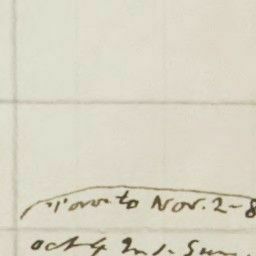 Toronto Nov. 2-8
Oct 4 2nd. Sun.